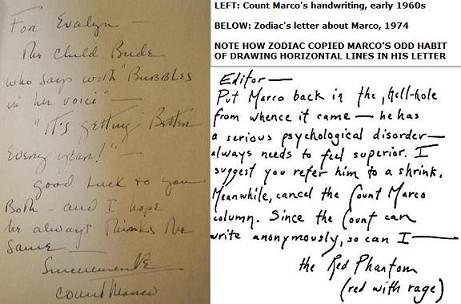 For Evalyn —
The Child Bride
who says with "Bubbles
in her voice" —
"It's getting Better
Every year!" —
good Luck to you
Both — and I hope
he always Thinks The
Same —
Count Marco
LEFT: Count Marco's handwriting, early 1960s
BELOW: Zodiac's letter about Marco, 1974
NOTE HOW ZODIAC COPIED MARCO'S ODD HABIT
OF DRAWING HORIZONTAL LINES IN HIS LETTER
Editor —
Put Marco back in the, hell-hole
from whence it came — he has
a serious psychological disorder —
always needs to feel superior. I
suggest you refer him to a shrink.
Meanwhile, cancel the Count Marco
column. Since the Count can
write anonymously, so can I —
the Red Phantom
(red with rage)